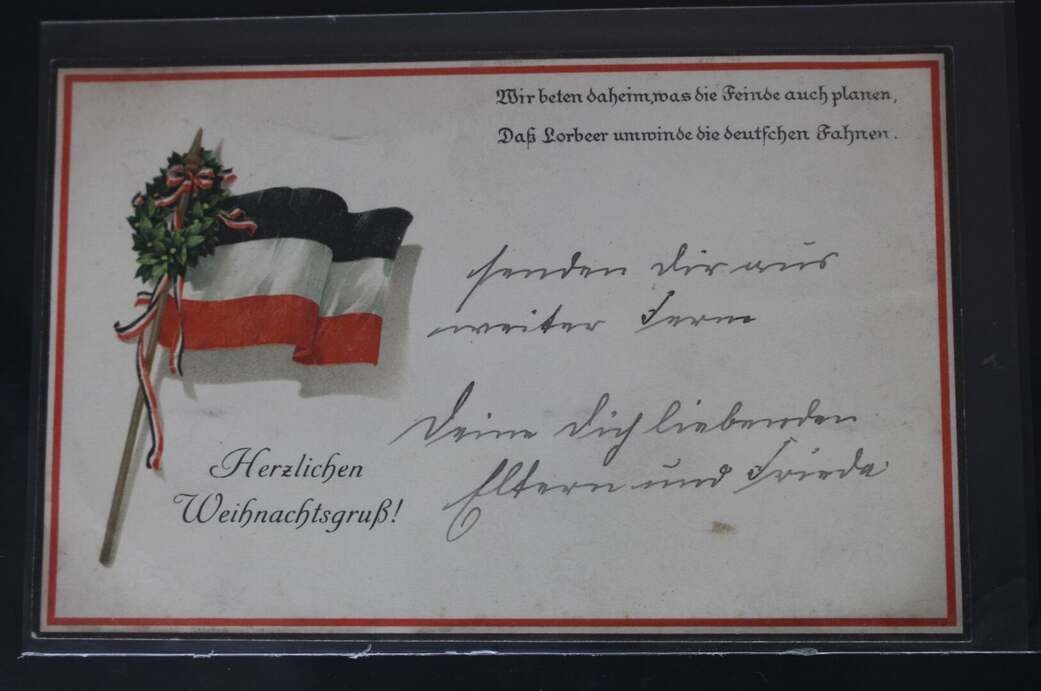 Wir beten daheim, was die Feinde auch planen,
Daß Lorbeer umwinde die deutschen Fahnen.
senden dir aus
weiter Fern
Deine dich liebenden
Eltern und Frieda
Herzlichen
Weihnachtsgruß!